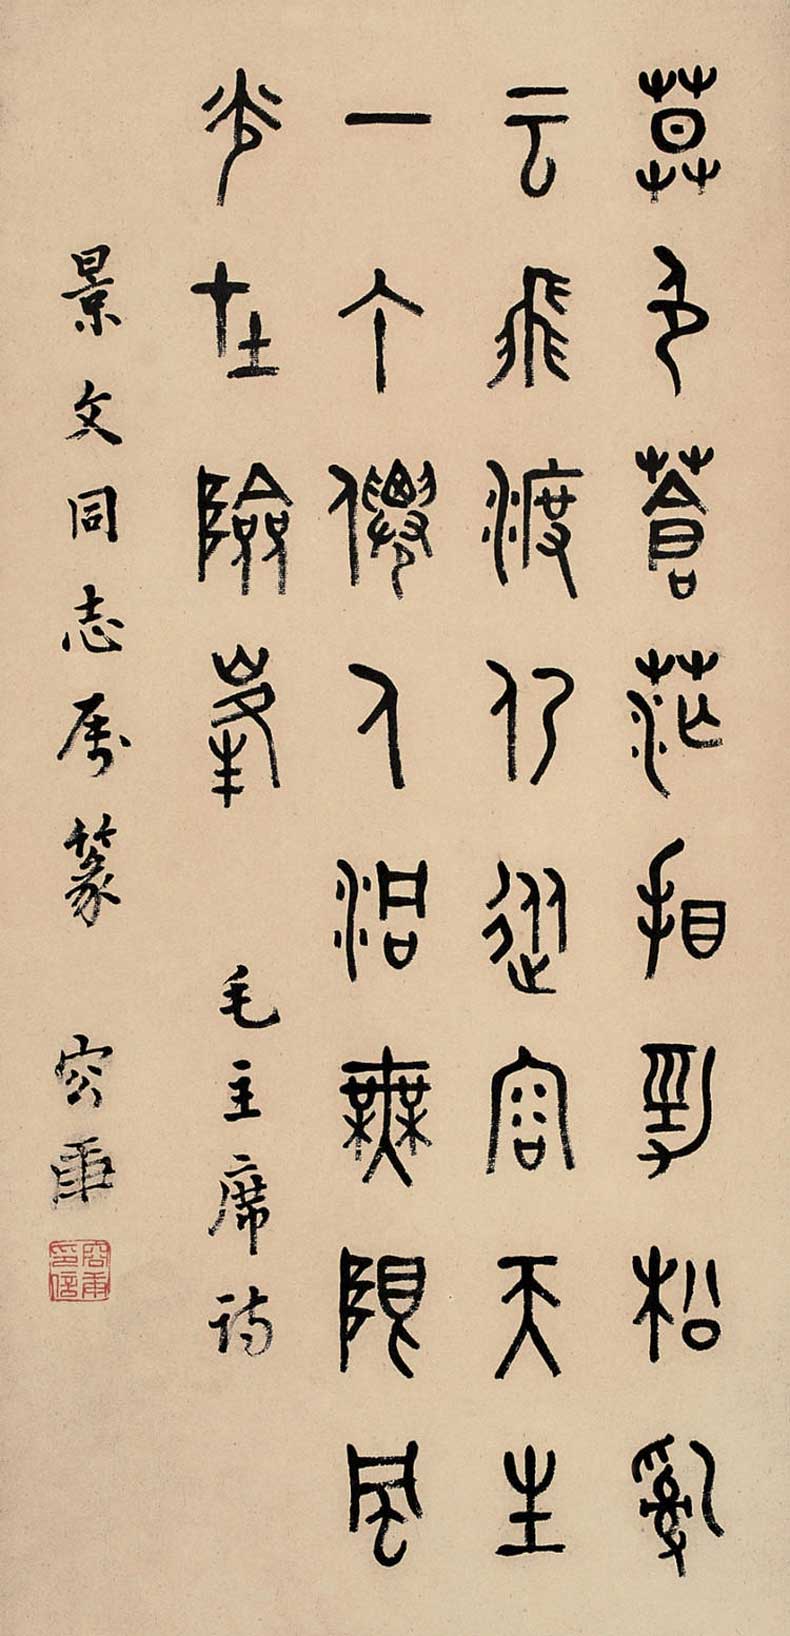 暮色蒼茫看勁松亂
云飛渡仍從容天生
一个僊人洞無限風
光在險峯 毛主席詩
景文同志属篆 容庚
容庚印信